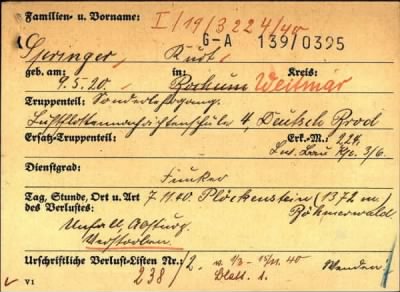 Familien- u. Vorname: I/19/3224/40
G-A 139/0395
Springer, Kurt
geb. am: in: Kreis:
9.5.20. Borkum Weitmar
Truppenteil: Sonderlehrgang
Luftflottennachrichtenschule 4, Deutsch Brod
Ersatz-Truppenteil: Erk.-M.: 224
Ln. Bau Kp. 3/6.
Dienstgrad: Funker
Tag, Stunde, Ort u. Art 7.11.40. Plöckenstein (1372 m)
des Verlustes: Böhmerwald
Unfall, Absturz.
Verstorben.
Urschriftliche Verlust-Listen Nr.:
238/2. v. 1/3-15/11.40
Blatt. 1. Wenden!
V1